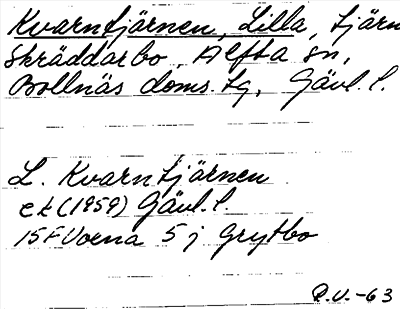 Kvarntjärnen, Lilla, tjärn
Skräddarbo, Alfta sn,
Bollnäs doms. tg, Gävl. l.
L. Kvarntjärnen
ek (1959) Gävl. l.
15F Voxna 5 j Grytbo
R.U.-63